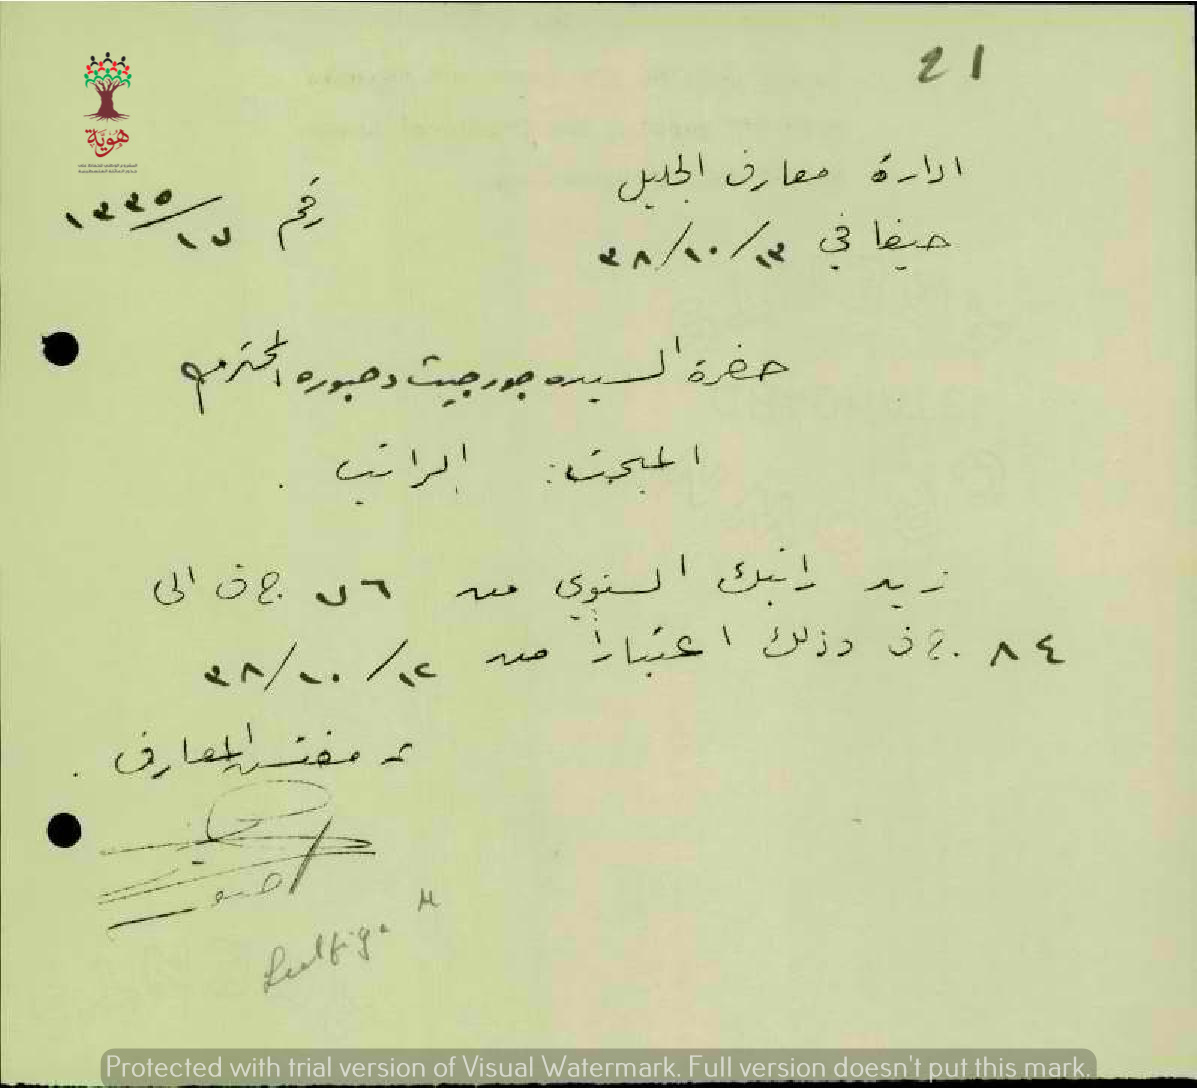 21
ادارة معارف الجليل
رقم ١٧/١٣٣٥
حيفا في ١٣/١٠/٣٨
حضرة السيده جورجيت دحبوره المحترمه
المبحث: الراتب .
زيد راتبك السنوي من ٧٦ ج ف الى
٨٤ ج ف وذلك اعتباراً من ١٢/١٠/٣٨
مفتش المعارف .
هُوِيَّة
Protected with trial version of Visual Watermark. Full version doesn't put this mark.